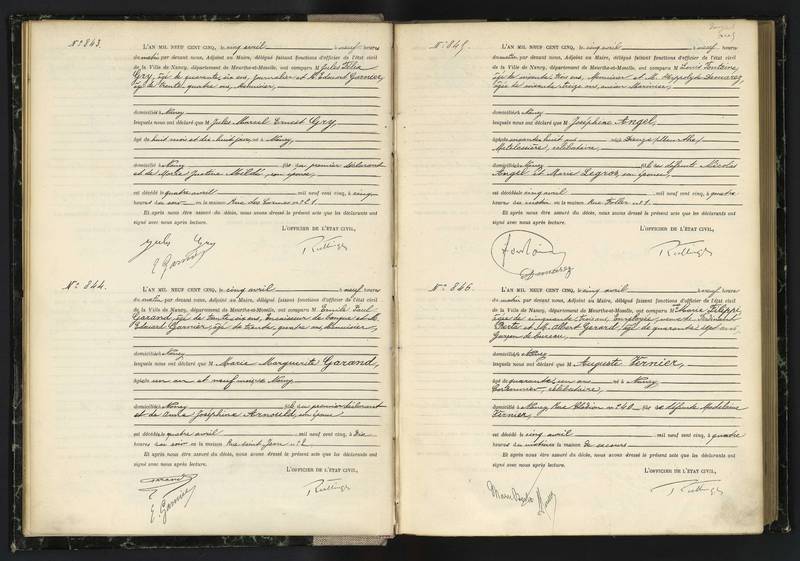 N° 843.
L'AN MIL NEUF CENT CINQ, le cinq avril à neuf heures
du matin par devant nous, Adjoint au Maire, délégué faisant fonctions d'officier de l'état civil
de la Ville de Nancy, département de Meurthe-et-Moselle, ont comparu M Jules Félix
Gry, âgé de quarante six ans, journalier et M. Edouard Garnier,
âgé de trente quatre ans, Menuisier,
domiciliés à Nancy
lesquels nous ont déclaré que M Jules Marcel Ernest Gry,
âgé de huit mois et dix huit jours, né à Nancy,
domicilié à Nancy fils du premier déclarant
et de Marie Justine son épouse,
est décédé le quatre avril mil neuf cent cinq, à cinq
heures du soir en la maison Rue des n° 21.
Et après nous être assuré du décès, nous avons dressé le présent acte que les déclarants ont
signé avec nous après lecture.
L'OFFICIER DE L'ÉTAT CIVIL,
Jules Gry
E. Garnier
N° 844.
L'AN MIL NEUF CENT CINQ, le cinq avril à neuf heures
du matin, par devant nous, Adjoint au Maire, délégué faisant fonctions d'officier de l'état civil
de la Ville de Nancy, département de Meurthe-et-Moselle, ont comparu M Emile Paul
Garand, âgé de trente six ans, Encaisseur de banque et M.
Edouard Garnier, âgé de trente quatre ans, Menuisier,
domiciliés à Nancy
lesquels nous ont déclaré que M Marie Marguerite Garand,
âgée de un an et neuf mois née à Nancy
domiciliée à Nancy fille du premier déclarant
et de Joséphine son épouse,
est décédée le quatre avril mil neuf cent cinq, à dix
heures du soir en la maison Rue Saint Jean n° 2.
Et après nous être assuré du décès, nous avons dressé le présent acte que les déclarants ont
signé avec nous après lecture.
L'OFFICIER DE L'ÉTAT CIVIL,
E. Garnier
N° 845.
L'AN MIL NEUF CENT CINQ, le cinq avril à neuf heures
du matin par devant nous, Adjoint au Maire, délégué faisant fonctions d'officier de l'état civil
de la Ville de Nancy, département de Meurthe-et-Moselle, ont comparu M Louis Fontaine,
âgé de trois ans, Menuisier et M. Hippolyte Demarez,
âgé de treize ans, ancien
domiciliés à Nancy
lesquels nous ont déclaré que M Joséphine Angel,
âgée de huit ans née à Dieuze (Meurthe)
Matelassière, célibataire,
domiciliée à Nancy fille des défunts Nicolas
Angel et Marie Legros son épouse,
est décédée le cinq avril mil neuf cent cinq, à quatre
heures du matin en la maison Rue n° 1.
Et après nous être assuré du décès, nous avons dressé le présent acte que les déclarants ont
signé avec nous après lecture.
L'OFFICIER DE L'ÉTAT CIVIL,
Fontaine
Demarez
N° 846.
L'AN MIL NEUF CENT CINQ, le cinq avril à neuf heures
du matin, par devant nous, Adjoint au Maire, délégué faisant fonctions d'officier de l'état civil
de la Ville de Nancy, département de Meurthe-et-Moselle, ont comparu M Marie Filippe,
âgée de cinquante trois ans, employée, veuve de Ferdinand
et M. Albert Gérard, âgé de quarante sept ans,
Garçon de bureau,
domiciliés à Nancy
lesquels nous ont déclaré que M Auguste Fernier,
âgé de quarante un ans né à Nancy
Cordonnier, célibataire,
domicilié à Nancy Rue n° 40 fils de défunte Madeleine
Fernier,
est décédé le cinq avril mil neuf cent cinq, à quatre
heures du matin en la maison de secours
Et après nous être assuré du décès, nous avons dressé le présent acte que les déclarants ont
signé avec nous après lecture.
L'OFFICIER DE L'ÉTAT CIVIL,